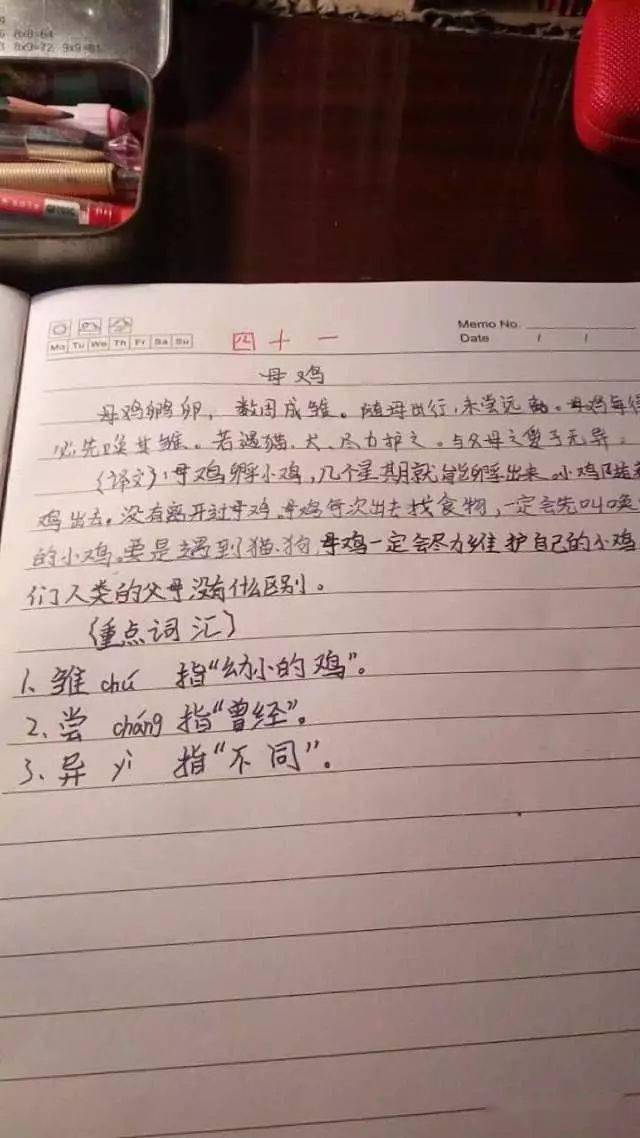 8x8=64
8x9=72 9x9=81
Memo No.
Mo Tu We Th Fr Sa Su
Date / /
四十一
母鸡
母鸡孵卵，数周成雏。随母出行，未尝远。母鸡每得
必先唤其雏。若遇猫、犬、尽力护之。与父母之爱子无异。
（译文）：母鸡孵小鸡，几个星期就能孵出来。小鸡陪着
鸡出去。没有离开过母鸡。母鸡每次出去找食物，一定会先叫唤
的小鸡。要是遇到猫、狗，母鸡一定会尽力维护自己的小鸡
们人类的父母没有什么区别。
（重点词汇）
1、雏 chú 指“幼小的鸡”。
2、尝 cháng 指“曾经”。
3、异 yì 指“不同”。